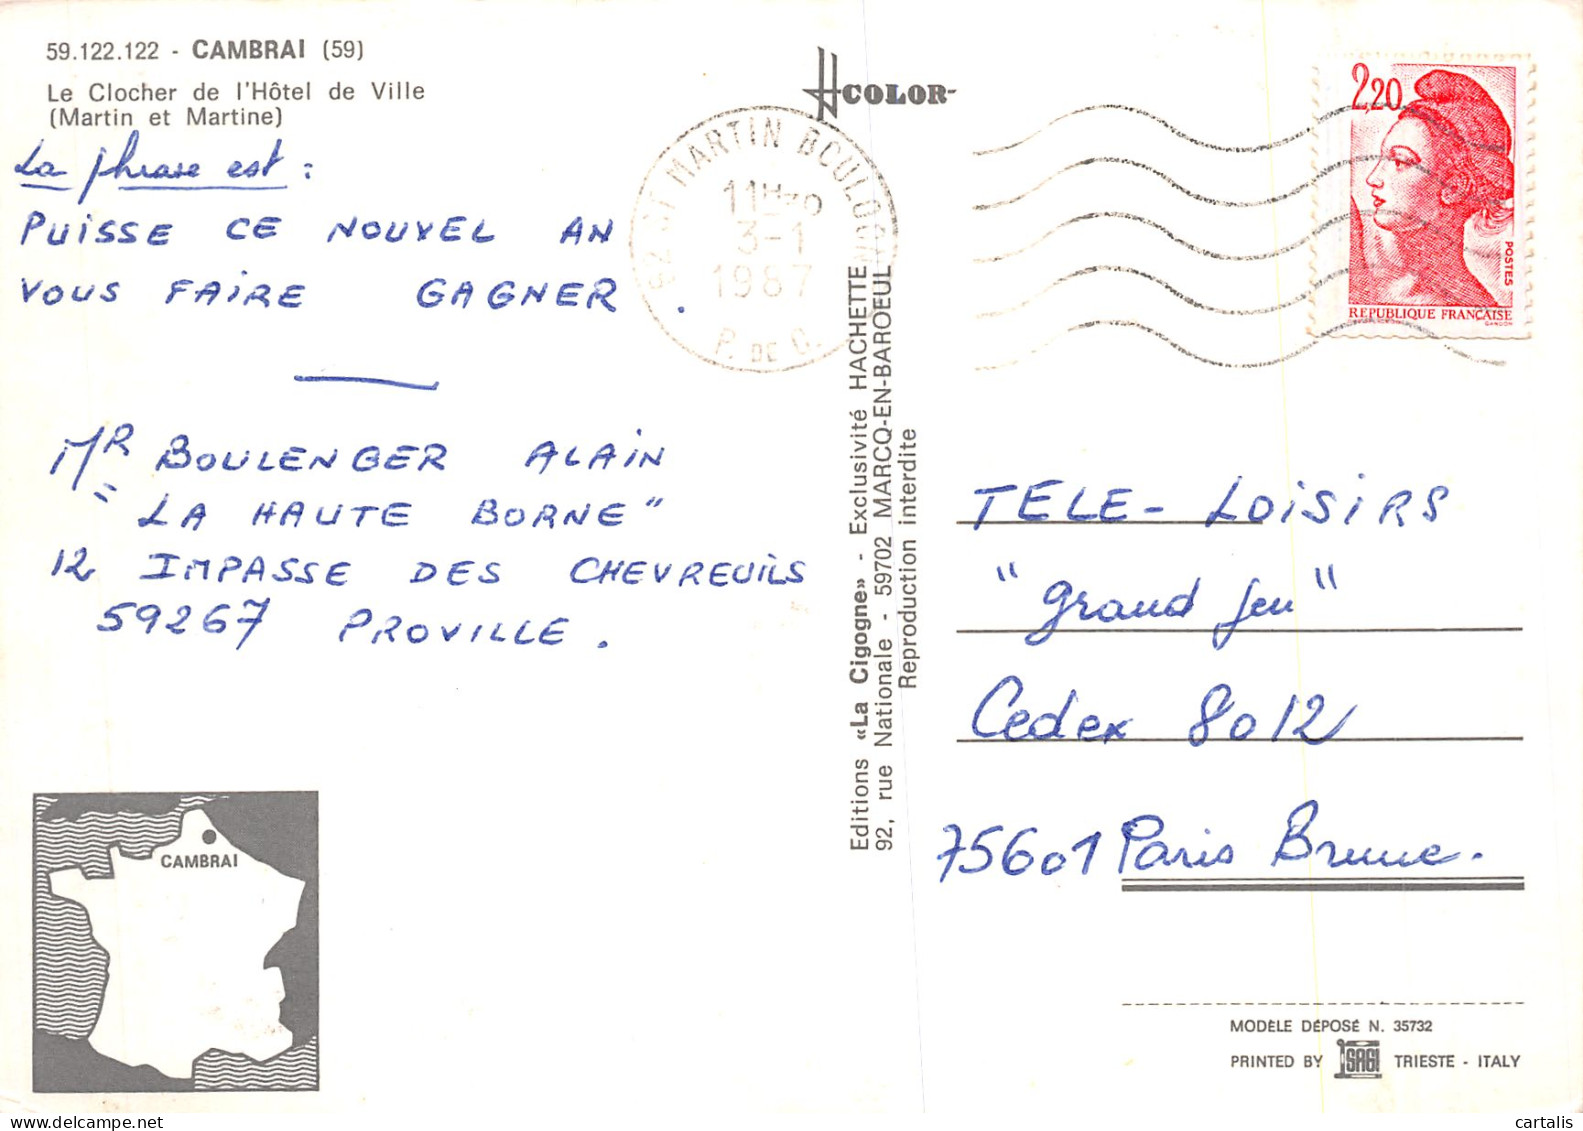 59.122.122 - CAMBRAI (59)
Le Clocher de l'Hôtel de Ville
(Martin et Martine)
La phrase est :
PUISSE CE NOUVEL AN
VOUS FAIRE GAGNER .
MR BOULENGER ALAIN
"LA HAUTE BORNE"
12 IMPASSE DES CHEVREUILS
59267 PROVILLE .
CAMBRAI
COLOR
92 ST MARTIN BOULOGNE
3-1
1987
P. DE C.
Editions «La Cigogne» - Exclusivité HACHETTE
92, rue Nationale - 59702 MARCQ-EN-BAROEUL
Reproduction interdite
2,20
POSTES
REPUBLIQUE FRANÇAISE
GANDON
TELE - LOISIRS
"grand jeu"
Cedex 8012
75601 Paris Brune .
MODÈLE DÉPOSÉ N. 35732
PRINTED BY SAGI TRIESTE - ITALY
cartalis